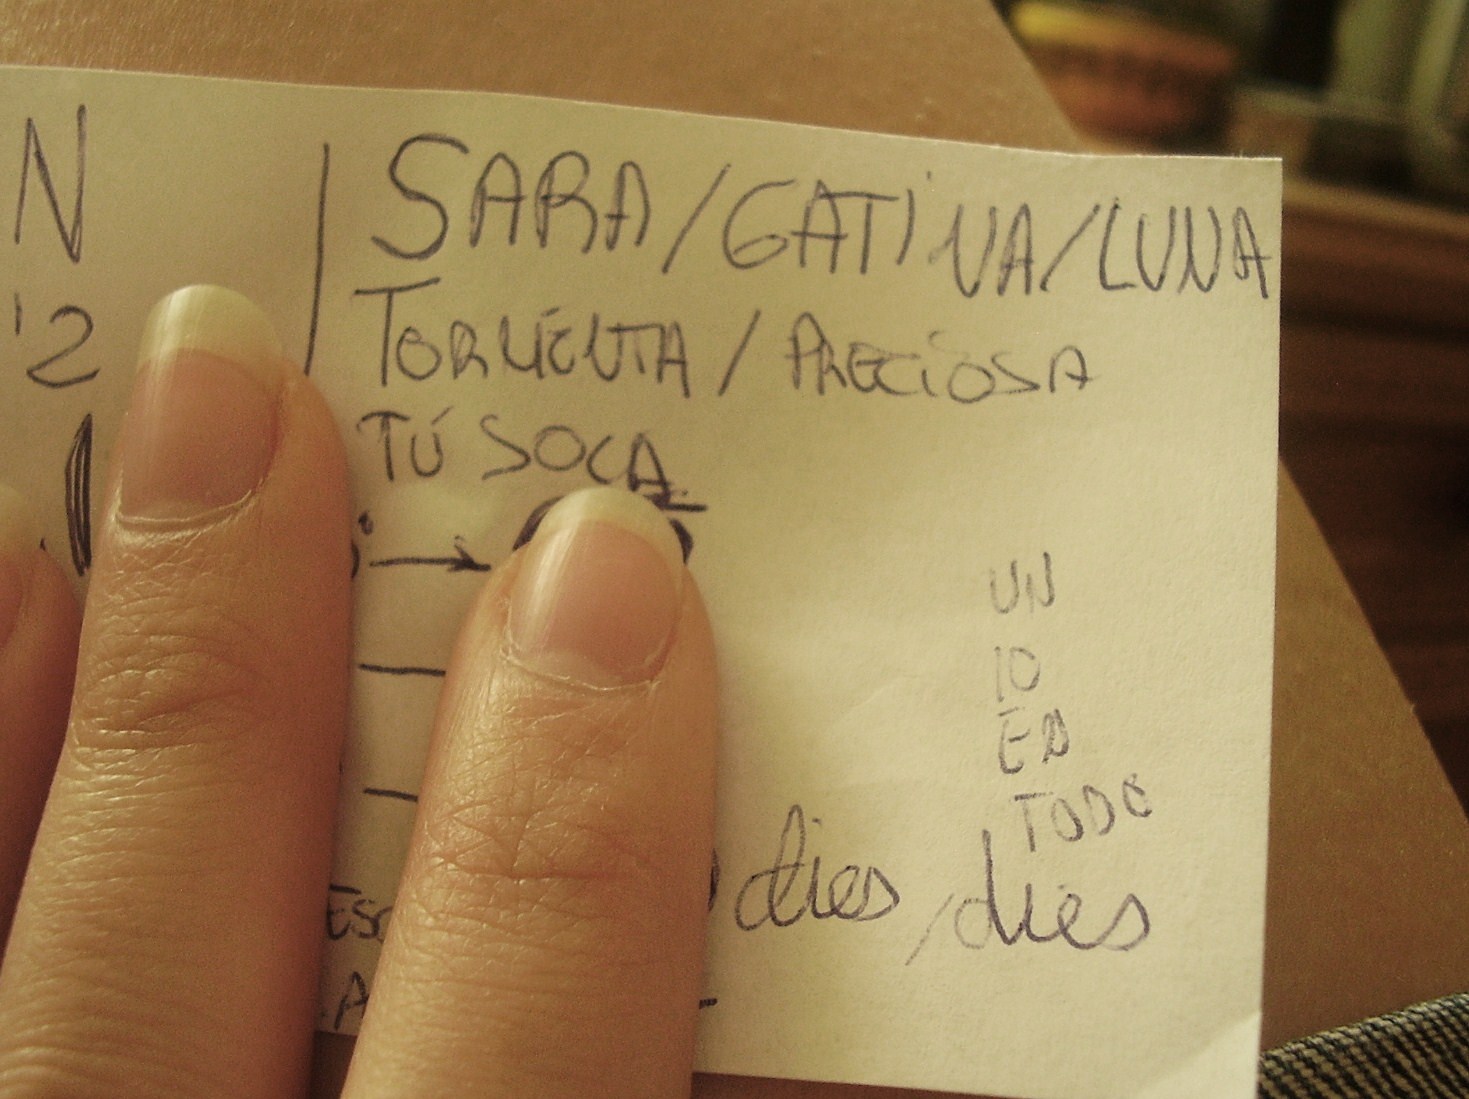 N
SARA/GATINA/LUNA
'2
TORMENTA/PRECIOSA
TÚ SOCA
UN
10
EN
TODO
dies, dies